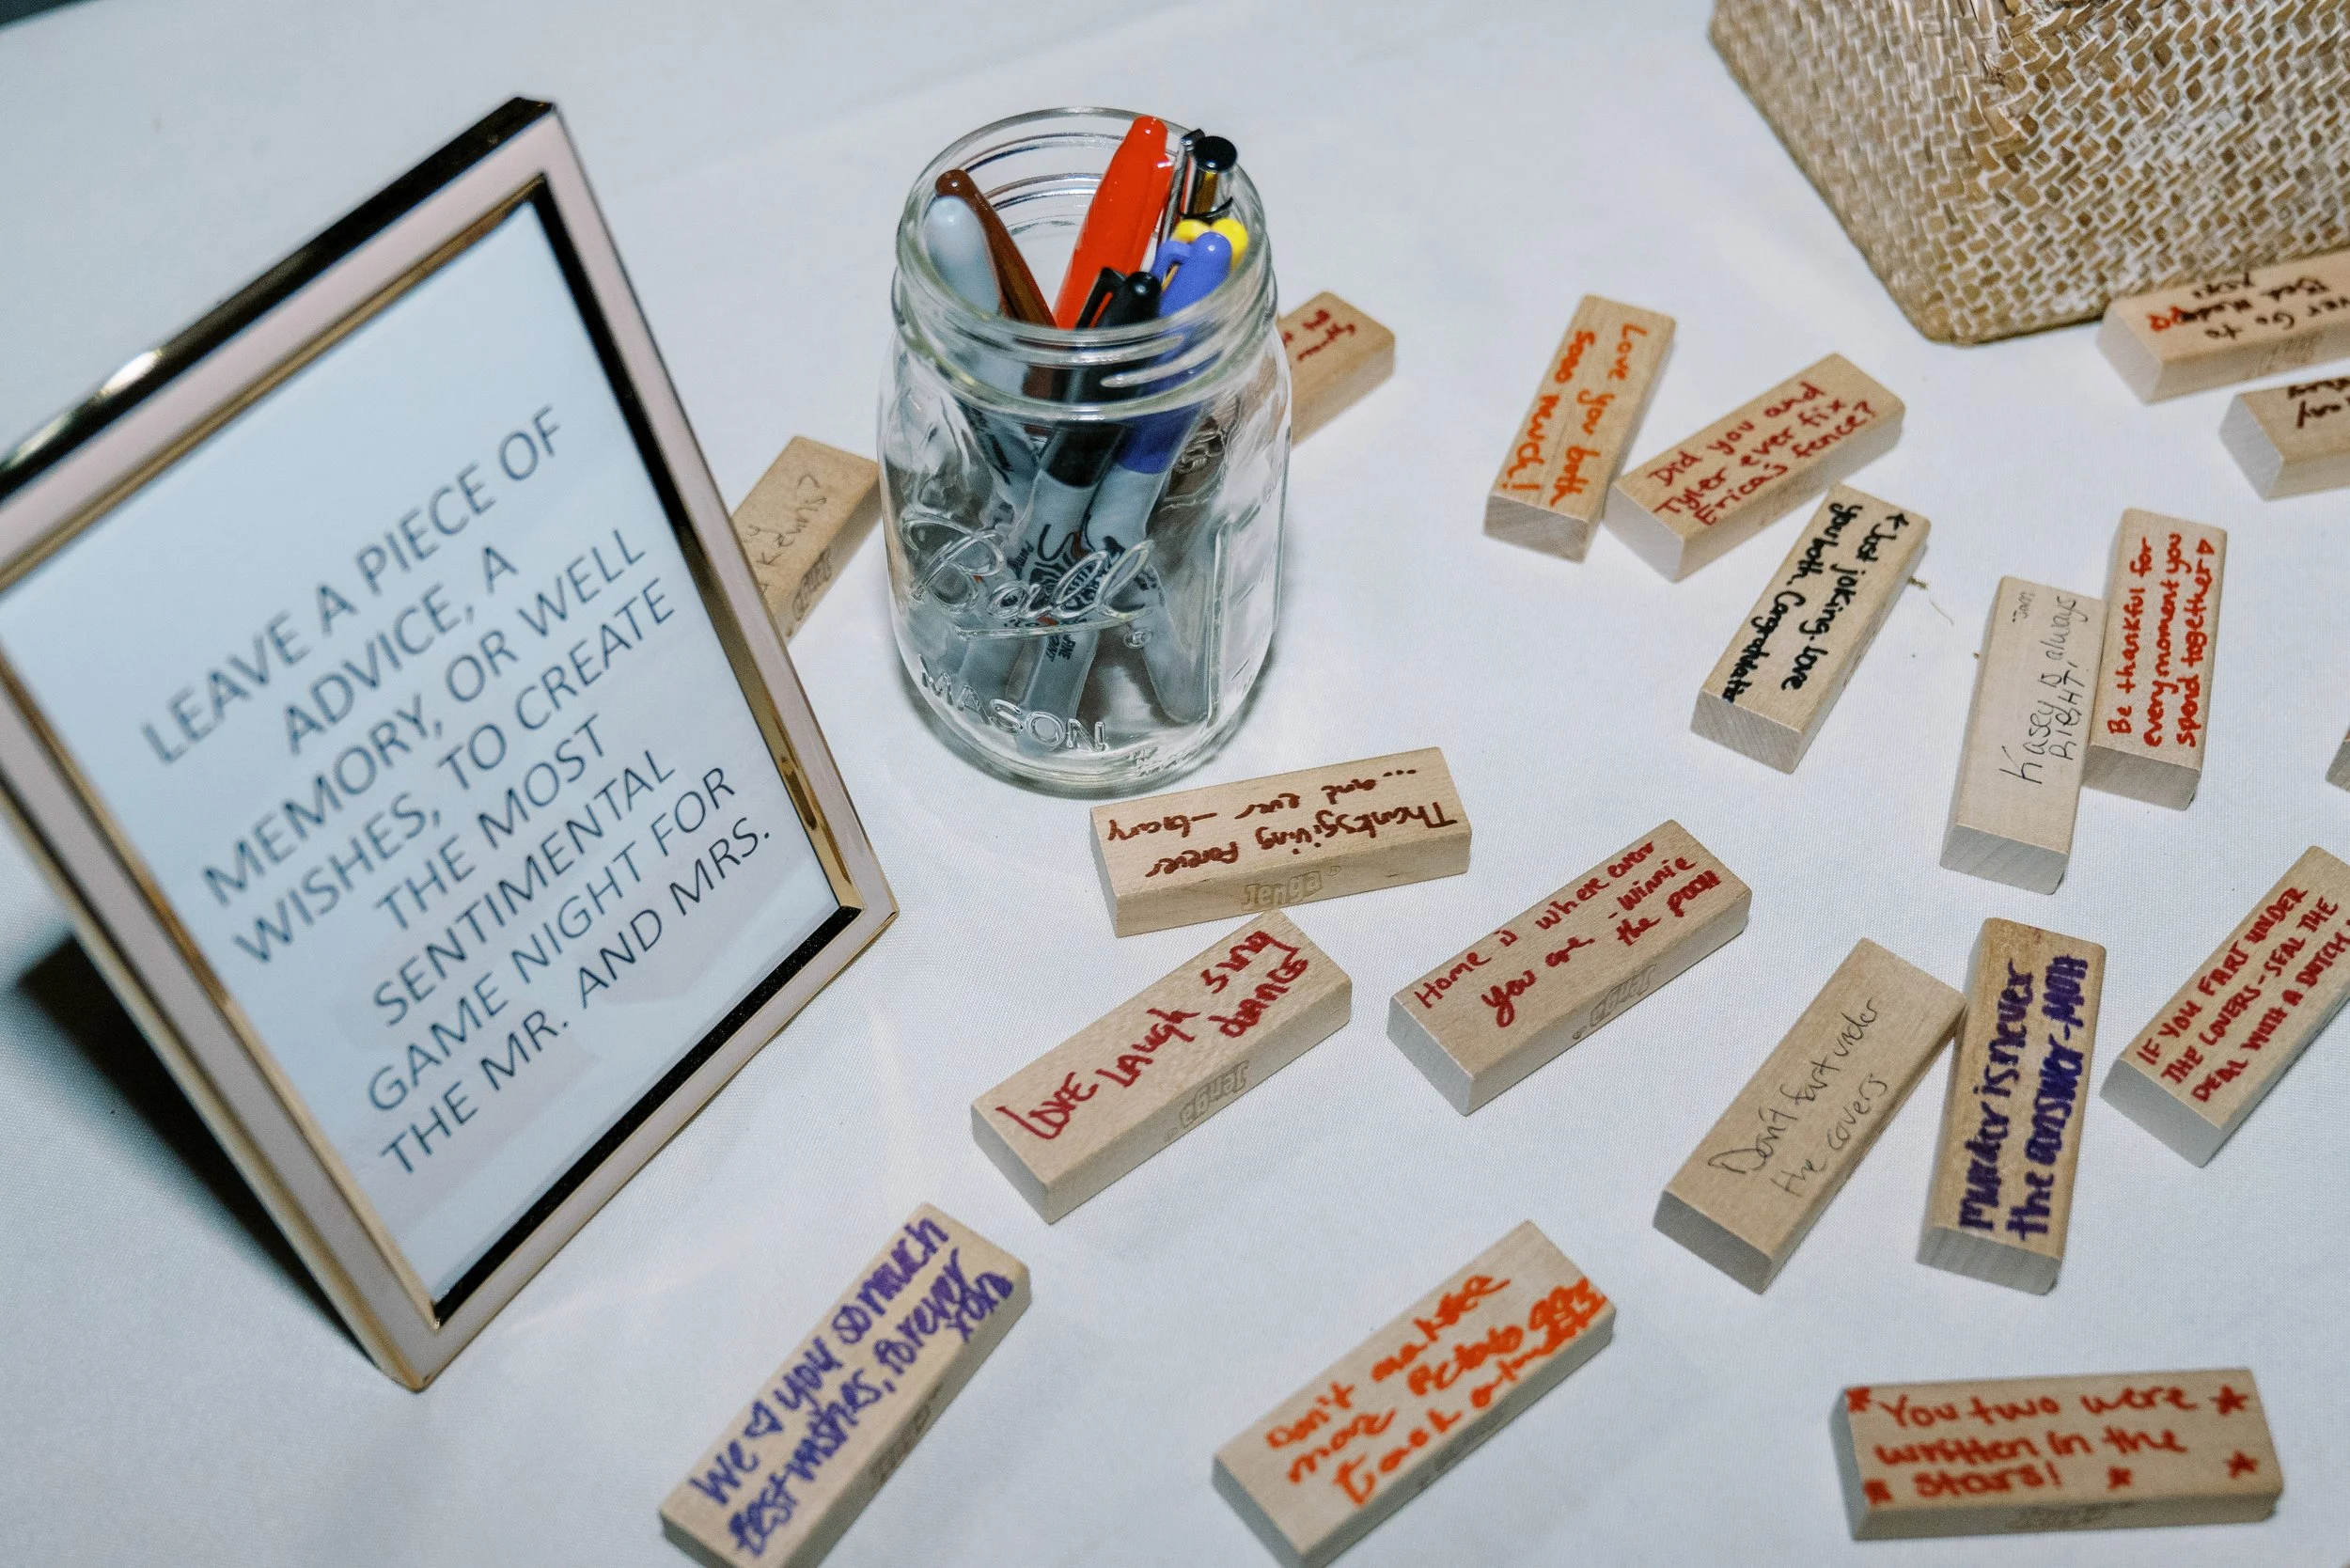 LEAVE A PIECE OF
ADVICE, A
MEMORY, OR WELL
WISHES, TO CREATE
THE MOST
SENTIMENTAL
GAME NIGHT FOR
THE MR. AND MRS.
Ball
MASON
Love you both
sooo much!
Did you and
Tyler ever fix
Erica's fence?
← Just joking. love
you both. Congratulations
Kasey is always
RIGHT!
Be thankful for
every moment you
spend together
Go to
Bed
Thanksgiving Forever
... and ever - Gary
Jenga
Home is where ever
you are - Winnie
the pooh
Jenga
LOVE LAugh sing
dance
Jenga
Don't fart under
the covers
Murder is never
the answer-MOH
IF YOU FART UNDER
THE LOVERS-SEAL THE
DEAL WITH A DUTCH
We ♡ you so much
best wishes, forever
Don't make
more
than
You two were
written in the
stars!